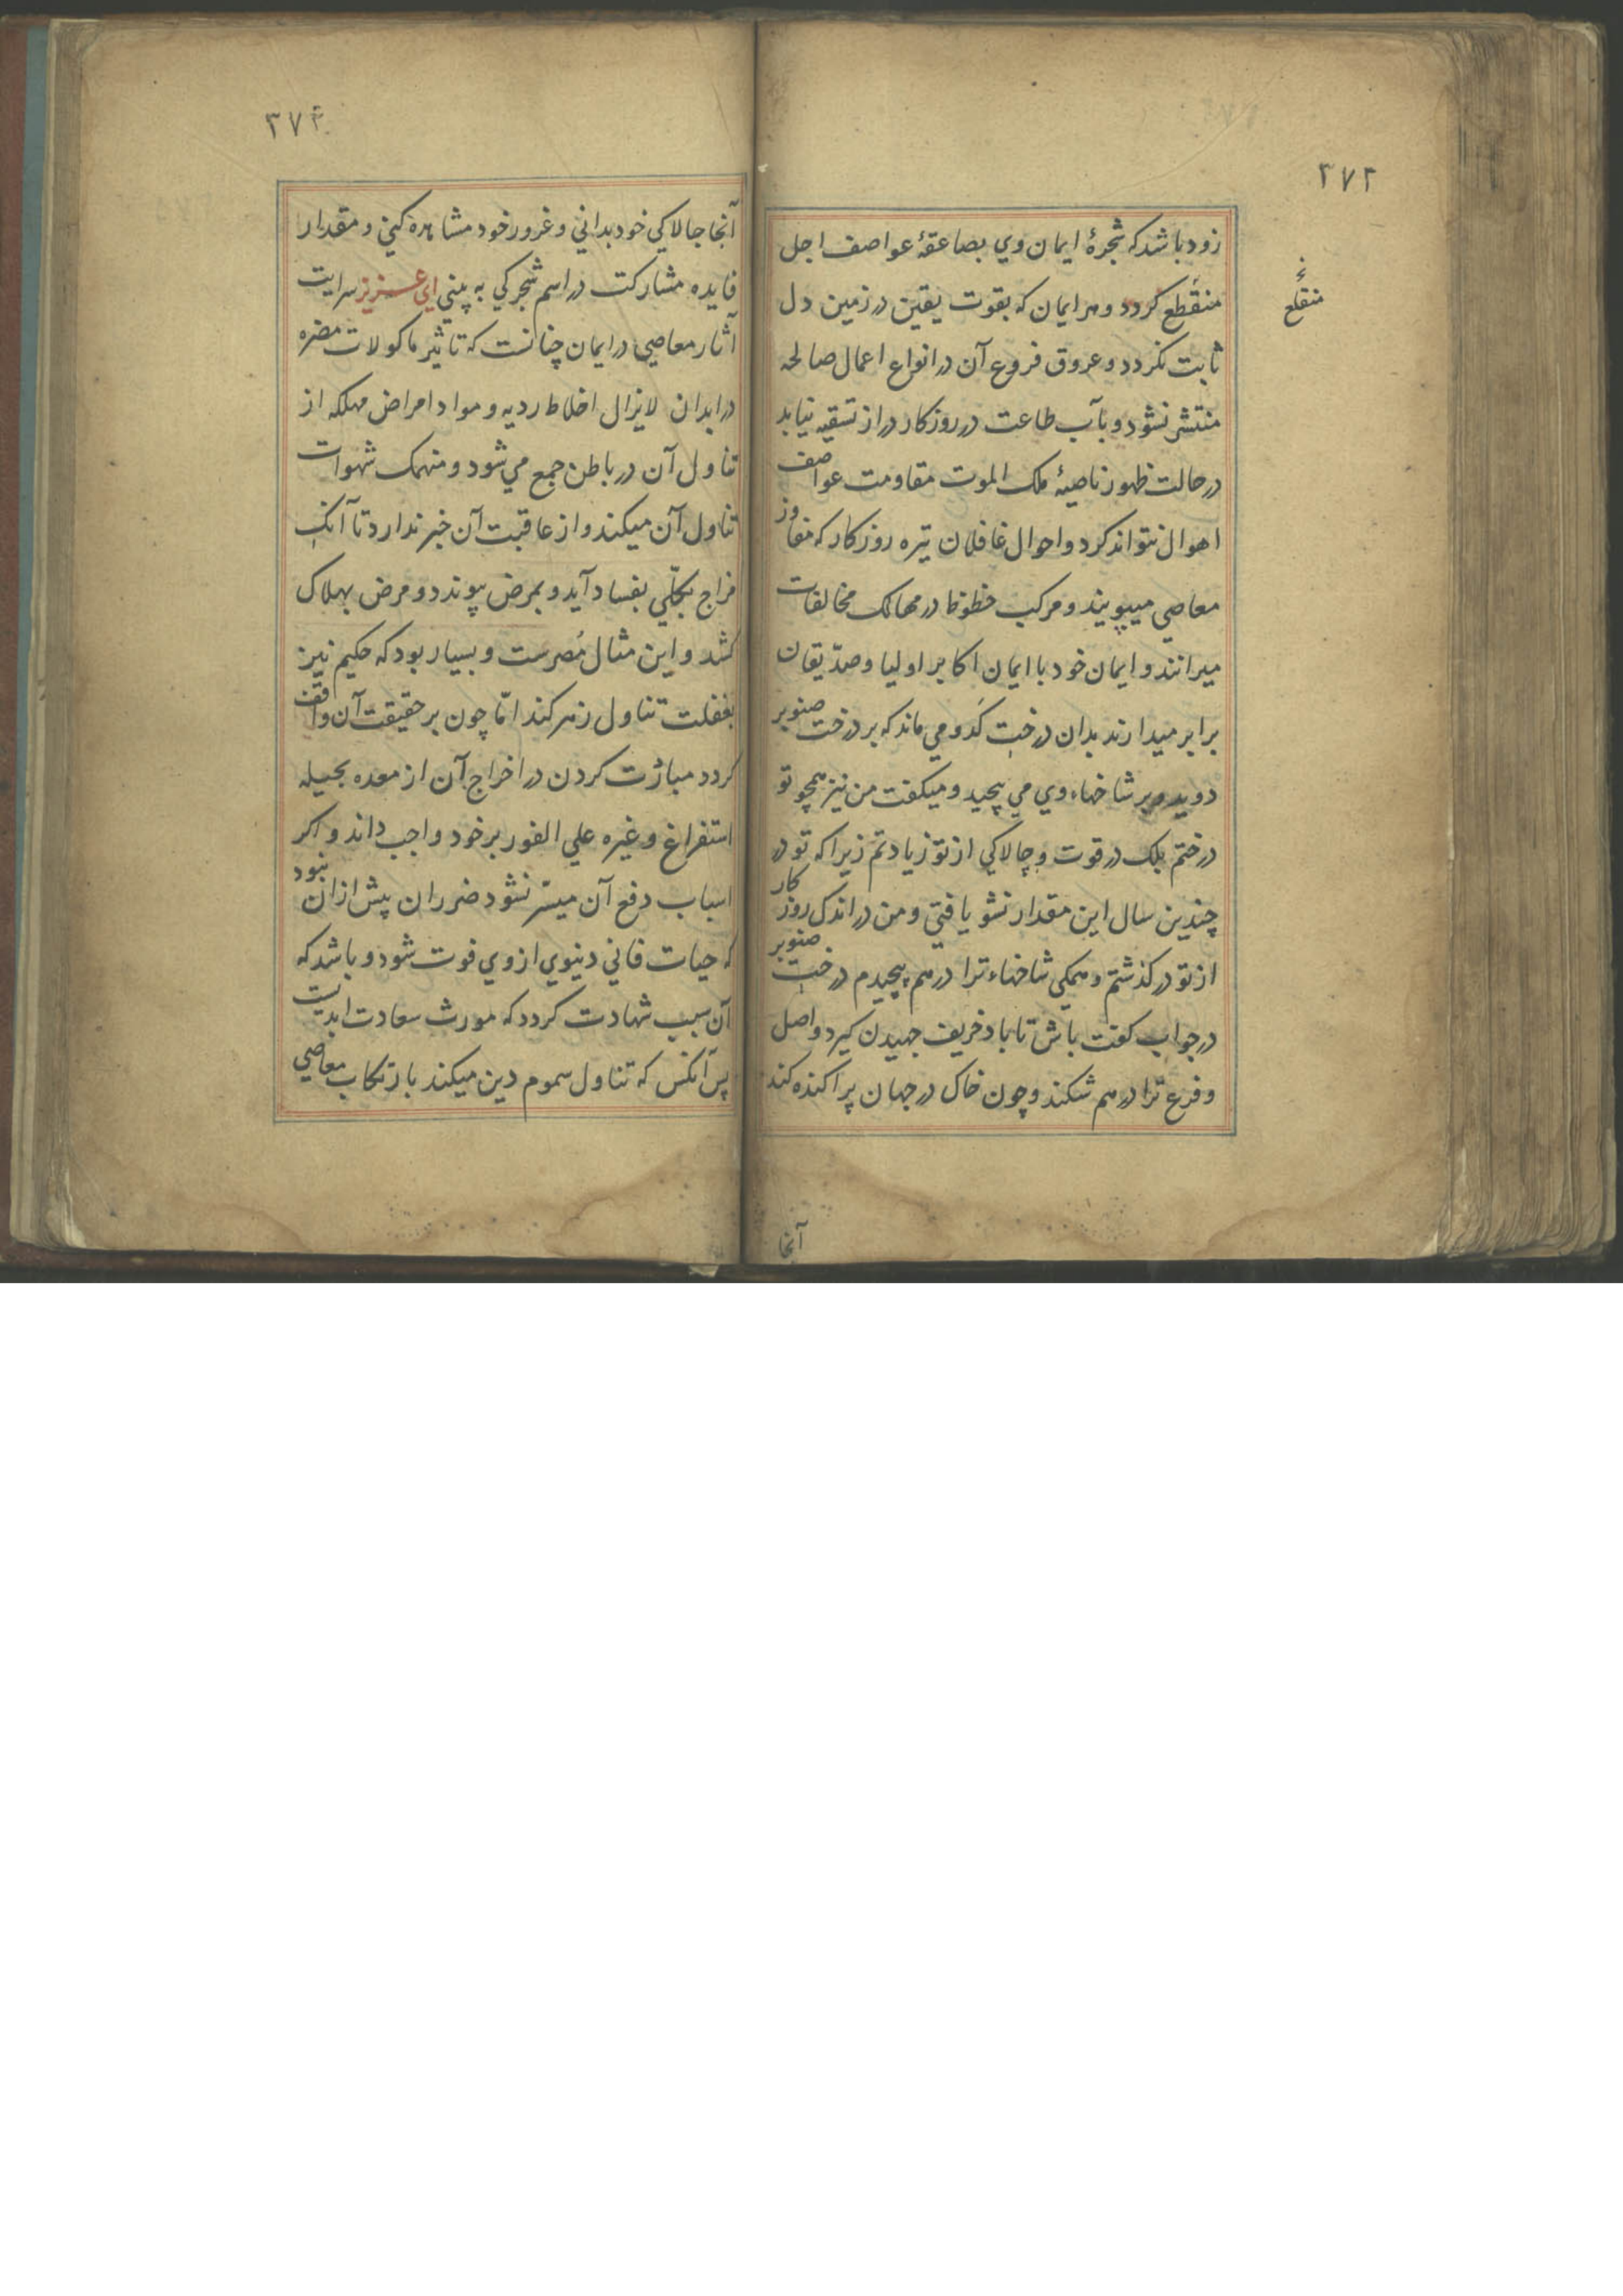 ۳۷۲
زود باشد که شجرهٔ ایمان وي بصاعقهٔ عواصف اجل
منقطع کردد و هر ایمان که بقوت یقین در زمین دل
منقلع
ثابت نکردد و عروق فروع آن در انواع اعمال صالحه
منتشر نشود و بآب طاعت در روزکار دراز تسقیه نیابد
در حالت ظهور ناصیهٔ ملک الموت مقاومت عواصف
اهوال نتواند کرد و احوال غافلان تیره روزکار که مفاوز
معاصي میپویند و مرکب حظوظ در مهالک مخالفات
میرانند و ایمان خود با ایمان اکابر اولیا و صدّیقان
برابر میدارند بدان درخت کدو می ماند که بر درخت صنوبر
دوید و بر شاخهاء وي مي پیچید و میکفت من نیز همچو تو
درختم بلک در قوت و چالاکي از تو زیادتم زیراکه تو در
چندین سال این مقدار نشو یافتي و من در اندک روزکار
از تو در کذشتم و همکی شاخهاء ترا در هم پیچیدم درخت صنوبر
در جواب کفت باش تا باد خریف جهیدن کیرد و اصل
و فرع ترا در هم شکند و چون خاک در جهان پراکنده کند
آنجا
۳۷۳
آنجا چالاکي خود بداني و غرور خود مشاهده کني و مقدار
فایده مشارکت در اسم شجرکي به بیني اي عزیز سرایت
آثار معاصي در ایمان چنانست که تاثیر ماکولات مضره
در ابدان لایزال اخلاط ردیه و مواد امراض مهلکه از
تناول آن در باطن جمع مي شود و منهمک شهوات
تناول آن میکند و از عاقبت آن خبر ندارد تا آنک
مزاج بکلّي بفساد آید و بمرض پیوندد و مرض بهلاک
کشد و این مثال مُصرست و بسیار بود که حکیم نیز
بغفلت تناول زهر کند امّا چون بر حقیقت آن واقف
کردد مبادرت کردن در اخراج آن از معده بحیله
استفراغ و غیره علي الفور بر خود واجب داند و اکر
اسباب دفع آن میسّر نشود ضرر ان پیش ازان نبود
که حیات فاني دنیوي از وي فوت شود و باشد که
آن سبب شهادت کردد که مورث سعادت ابدیست
پس آنکس که تناول سموم دین میکند بارتکاب معاصي